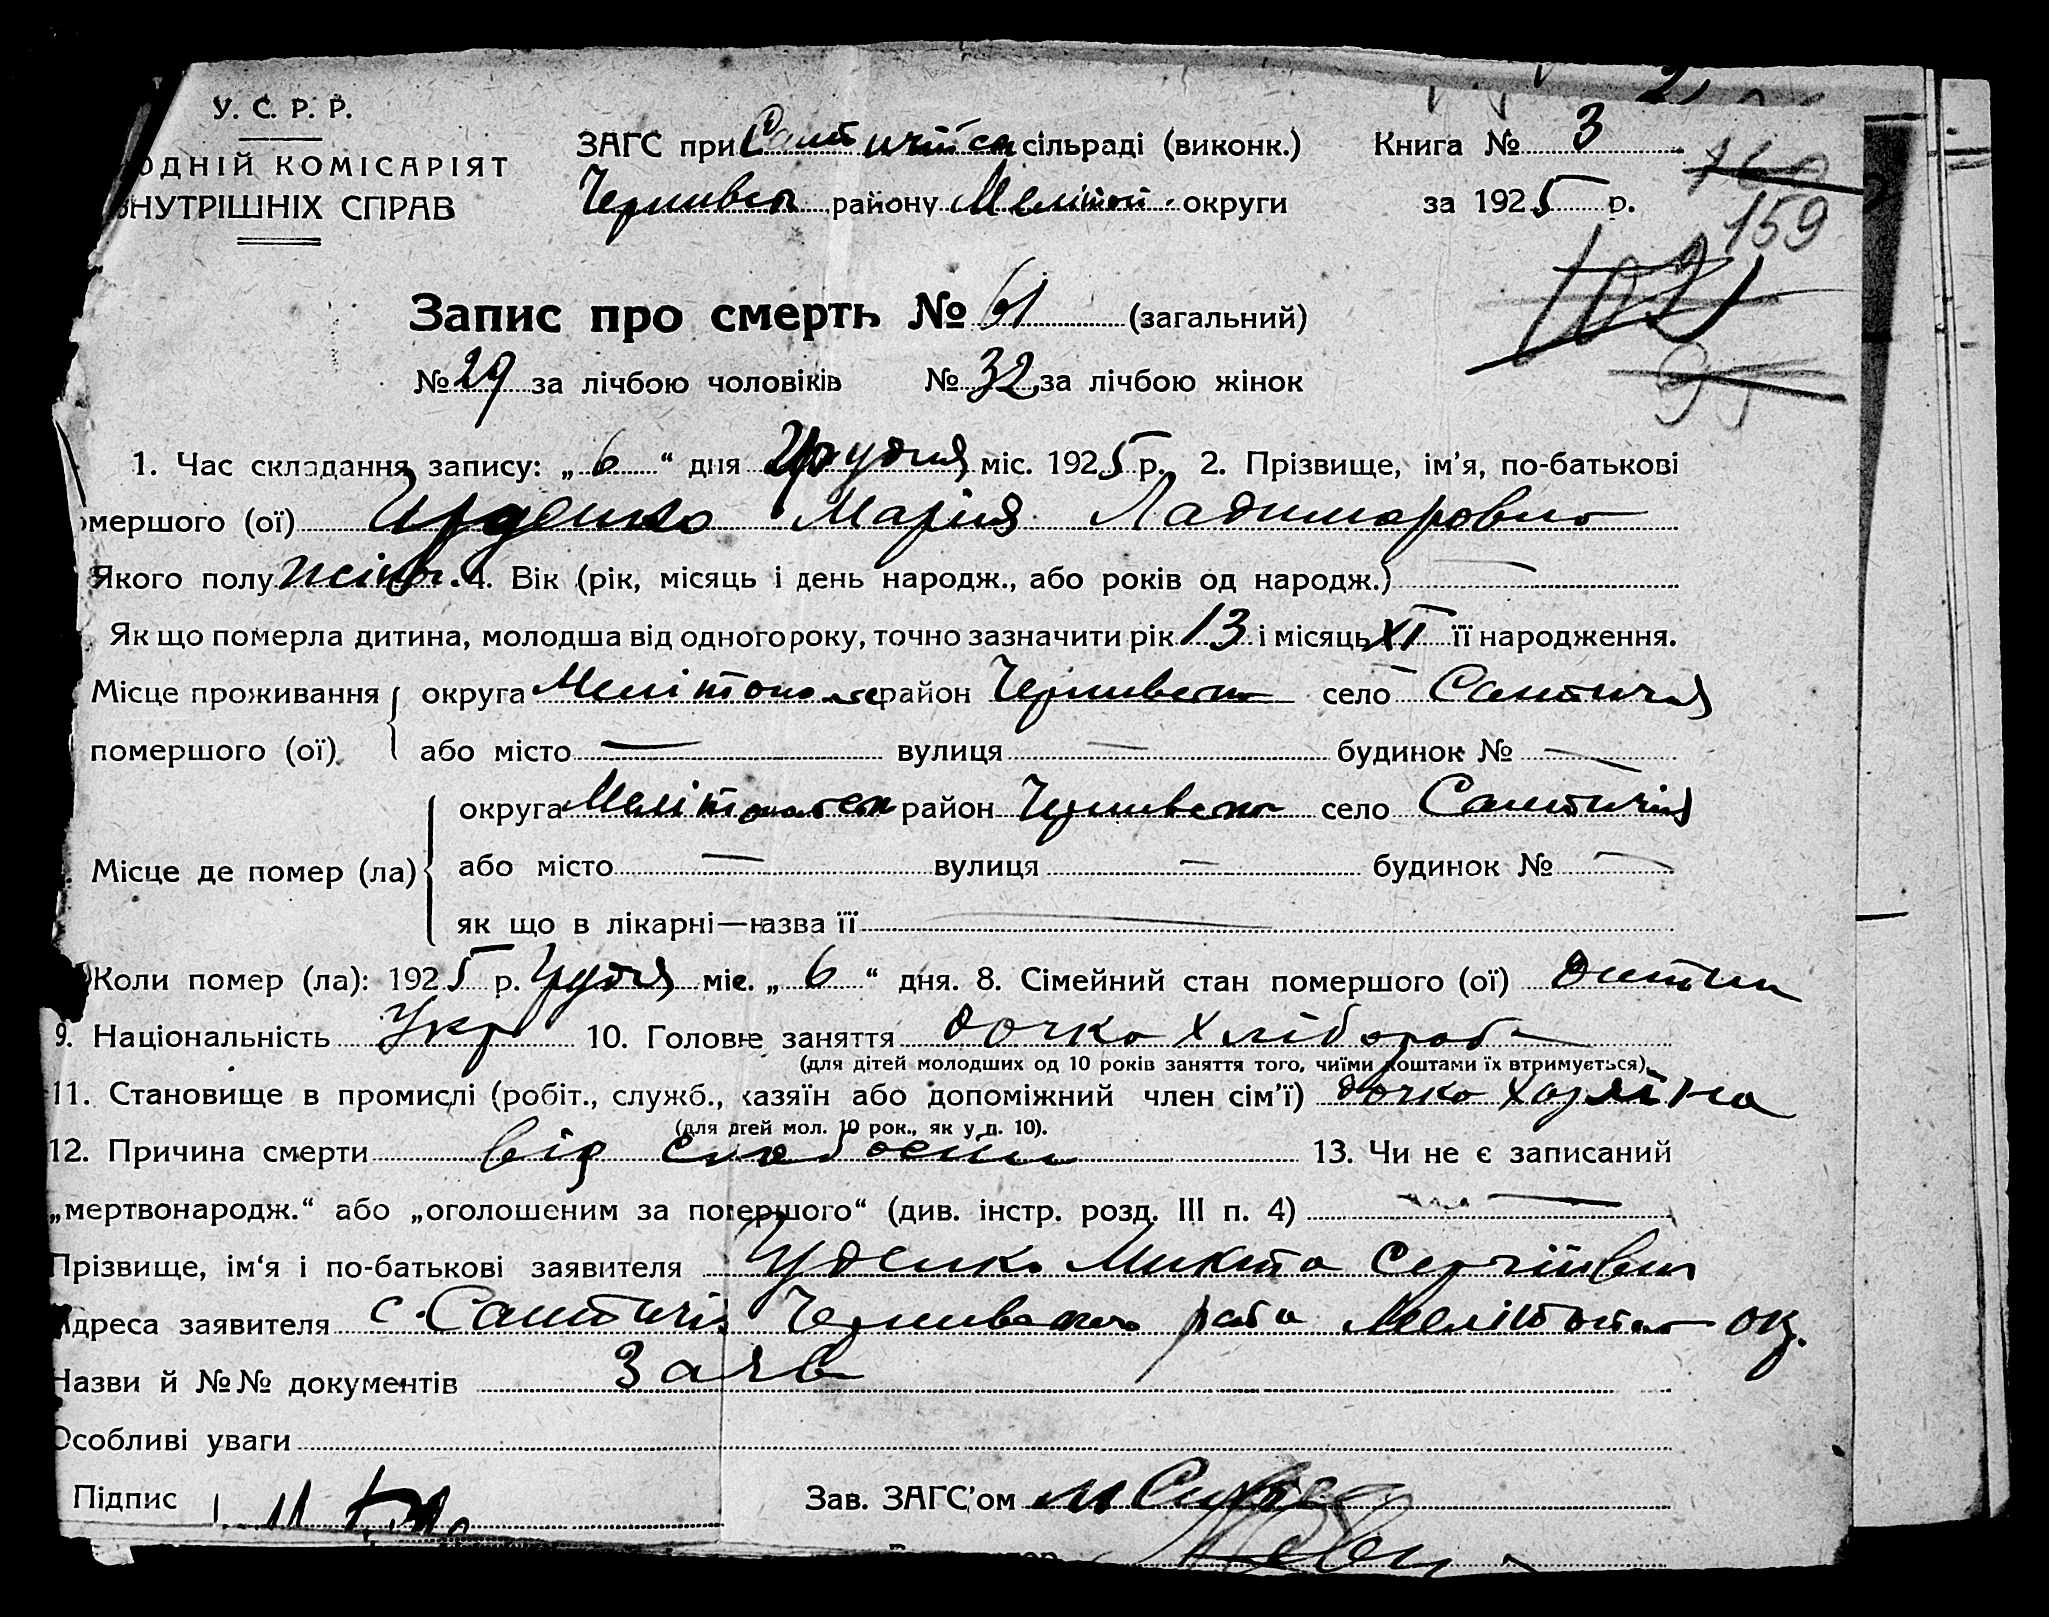 У. С. Р. Р.
ОДНІЙ КОМІСАРІЯТ
ВНУТРІШНІХ СПРАВ
ЗАГС при сільраді (виконк.) Книга № 3
району Мелітоп. округи за 1925 р.
159
Запис про смерть № 61 (загальний)
№ 29 за лічбою чоловіків № 32 за лічбою жінок
1. Час складання запису: „ 6 “ дня Грудня міс. 1925 р. 2. Прізвище, ім'я, по-батькові
омершого (ої) Марія Ладимировна
Якого полу жіноч. 4. Вік (рік, місяць і день народж., або років од народж.) —
Як що померла дитина, молодша від одного року, точно зазначити рік 13 і місяць XI її народження.
Місце проживання округа район село
помершого (ої) або місто — вулиця — будинок № —
округа район село
Місце де помер (ла) або місто — вулиця — будинок № —
як що в лікарні—назва її —
Коли помер (ла): 1925 р. Грудня міс. „ 6 “ дня. 8. Сімейний стан помершого (ої) дитина
9. Національність Укр 10. Головне заняття дочка хлібороба
(для дітей молодших од 10 років заняття того, чиїми коштами їх втримується).
11. Становище в промислі (робіт., служб., хазяїн або допоміжний член сім'ї) дочка хазяїна
(для дітей мол. 10 рок., як у п. 10).
12. Причина смерти від слабости 13. Чи не є записаний
„мертвонародж.“ або „оголошеним за помершого“ (див. інстр. розд. III п. 4) —
Прізвище, ім'я і по-батькові заявителя Микита Сергійович
Адреса заявителя с. району ок.
Назви й №№ документів Заяв
Особливі уваги
Підпис Зав. ЗАГС'ом